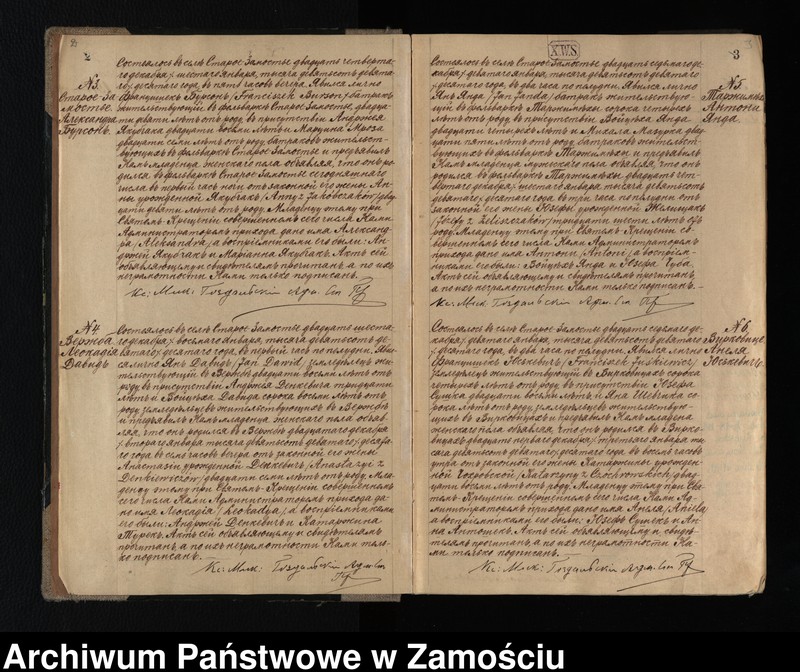 2
№3.
Старое За-
мостье
Александра
Бурсонъ.
Состоялось въ селѣ Старое Замостье двадцать четверта-
го декабря / шестаго января, тысяча девятьсотъ девята-
го / десятаго года, въ пять часовъ вечера. Явился лично
Францишекъ Бурсонъ / Franciszek Burson / батракъ
жительствующій въ фольваркѣ Старое Замостье, двадца-
ти девяти лѣтъ отъ роду, въ присутствіи Андржея
Якубчака двадцати восьми лѣтъ и Марцина Мроза
двадцати семи лѣтъ отъ роду, батраковъ жительст-
вующихъ въ фольваркѣ Старое Замостье и предъявилъ
Намъ младенца женскаго пола объявляя, что онъ ро-
дился въ фольваркѣ Старое Замостье сегодняшняго
числа въ первый часъ ночи отъ законной его жены Ан-
ны урожденной Якубчакъ / Anny z Jakóbczaków / двад-
цати девяти лѣтъ отъ роду. Младенцу этому при
Святомъ Крещеніи совершенномъ сего числа Нами
Администраторомъ прихода дано имя Александ-
ра / Aleksandra /, а воспріемниками его были: Ан-
джей Якубчакъ и Маріанна Якубчакъ. Актъ сей
объявляющему и свидѣтелямъ прочитанъ, а по ихъ
неграмотности Нами только подписанъ.
Кс: Мик:
№4.
Вержба
Леокадія
Давидъ
Состоялось въ селѣ Старое Замостье двадцать шеста-
го декабря / восьмаго января, тысяча девятьсотъ де-
вятаго / десятаго года, въ первый часъ по полудни. Яви-
лся лично Янъ Давидъ / Jan Dawid / земледѣлецъ жи-
тельствующій въ Вержбѣ двадцати восьми лѣтъ отъ
роду въ присутствіи Андржея Денкевича тридцати
лѣтъ и Войцѣха Давида сорока восьми лѣтъ отъ
роду, земледѣльцевъ жительствующихъ въ Вержбѣ
и предъявилъ Намъ младенца женскаго пола объяв-
ляя, что онъ родился въ Вержбѣ двадцатаго декабря
/ втораго января тысяча девятьсотъ девятаго / десята-
го года въ семь часовъ вечера отъ законной его жены
Анастазіи урожденной Денкевичъ / Anastazyi z
Denkiewiczów / двадцати семи лѣтъ отъ роду. Мла-
денцу этому при Святомъ Крещеніи совершенномъ
сего числа Нами Администраторомъ прихода да-
но имя Леокадія / Leokadya /, а воспріемниками
его были: Анджей Денкевичъ и Катаржина
Турекъ. Актъ сей объявляющему и свидѣтелямъ
прочитанъ а по ихъ неграмотности Нами толь-
ко подписанъ.
Кс: Мик:
X.W.S.
3
№5.
Антони
Янда.
Состоялось въ селѣ Старое Замостье двадцать седьмаго де-
кабря / девятаго января, тысяча девятьсотъ девятаго
/ десятаго года, въ два часа по полудни. Явился лично
Янъ Янда / Jan Janda / батракъ жительствую-
щій въ фольваркѣ сорока четырехъ
лѣтъ отъ роду въ присутствіи Войцѣха Янда
двадцати четырехъ лѣтъ и Михала Мазурка двад-
цати пяти лѣтъ отъ роду, батраковъ жительст-
вующихъ въ фольваркѣ и предъявилъ
Намъ младенца мужескаго пола объявляя, что онъ
родился въ фольваркѣ двадцать чет-
вертаго декабря / шестаго января тысяча девятьсотъ
девятаго / десятаго года въ три часа по полудни отъ
законной его жены Юзефы урожденной
/ Józefy z / тридцати шести лѣтъ отъ
роду. Младенцу этому при Святомъ Крещеніи со-
вершенномъ сего числа Нами Администраторомъ
прихода дано имя Антони / Antoni / а воспріем-
никами его были: Войцѣхъ Янда и Юзефа
Актъ сей объявляющему и свидѣтелямъ прочитанъ,
а по ихъ неграмотности Нами только подписанъ.
Кс: Мик:
№6.
Вирковице
Анеля
Юськевичъ
Состоялось въ селѣ Старое Замостье двадцать седьмаго де-
кабря / девятаго января, тысяча девятьсотъ девятаго
/ десятаго года, въ два часа по полудни. Явился лично
Францишекъ Юськевичъ / Franciszek Juśkiewicz /
земледѣлецъ жительствующій въ Вирковицахъ сорока
четырехъ лѣтъ отъ роду, въ присутствіи Юзефа
Сушка двадцати восьми лѣтъ и Яна Шевчика со-
рока лѣтъ отъ роду, земледѣльцевъ жительствую-
щихъ въ Вирковицахъ и предъявилъ Намъ младенца
женскаго пола объявляя, что онъ родился въ Вирко-
вицахъ двадцать перваго декабря / третьяго января ты-
сяча девятьсотъ девятаго / десятаго года въ восемь часовъ
утра отъ законной его жены Катаржины урожден-
ной / Katarzyny z / двад-
цати восьми лѣтъ отъ роду. Младенцу этому при Свя-
томъ Крещеніи совершенномъ сего числа Нами Ад-
министраторомъ прихода дано имя Анеля / Aniela
а воспріемниками его были: Юзефъ Сушекъ и Ан-
на Антошекъ. Актъ сей объявляющему и свидѣ-
телямъ прочитанъ, а по ихъ неграмотности На-
ми только подписанъ.
Кс: Мик:
Archiwum Państwowe w Zamościu